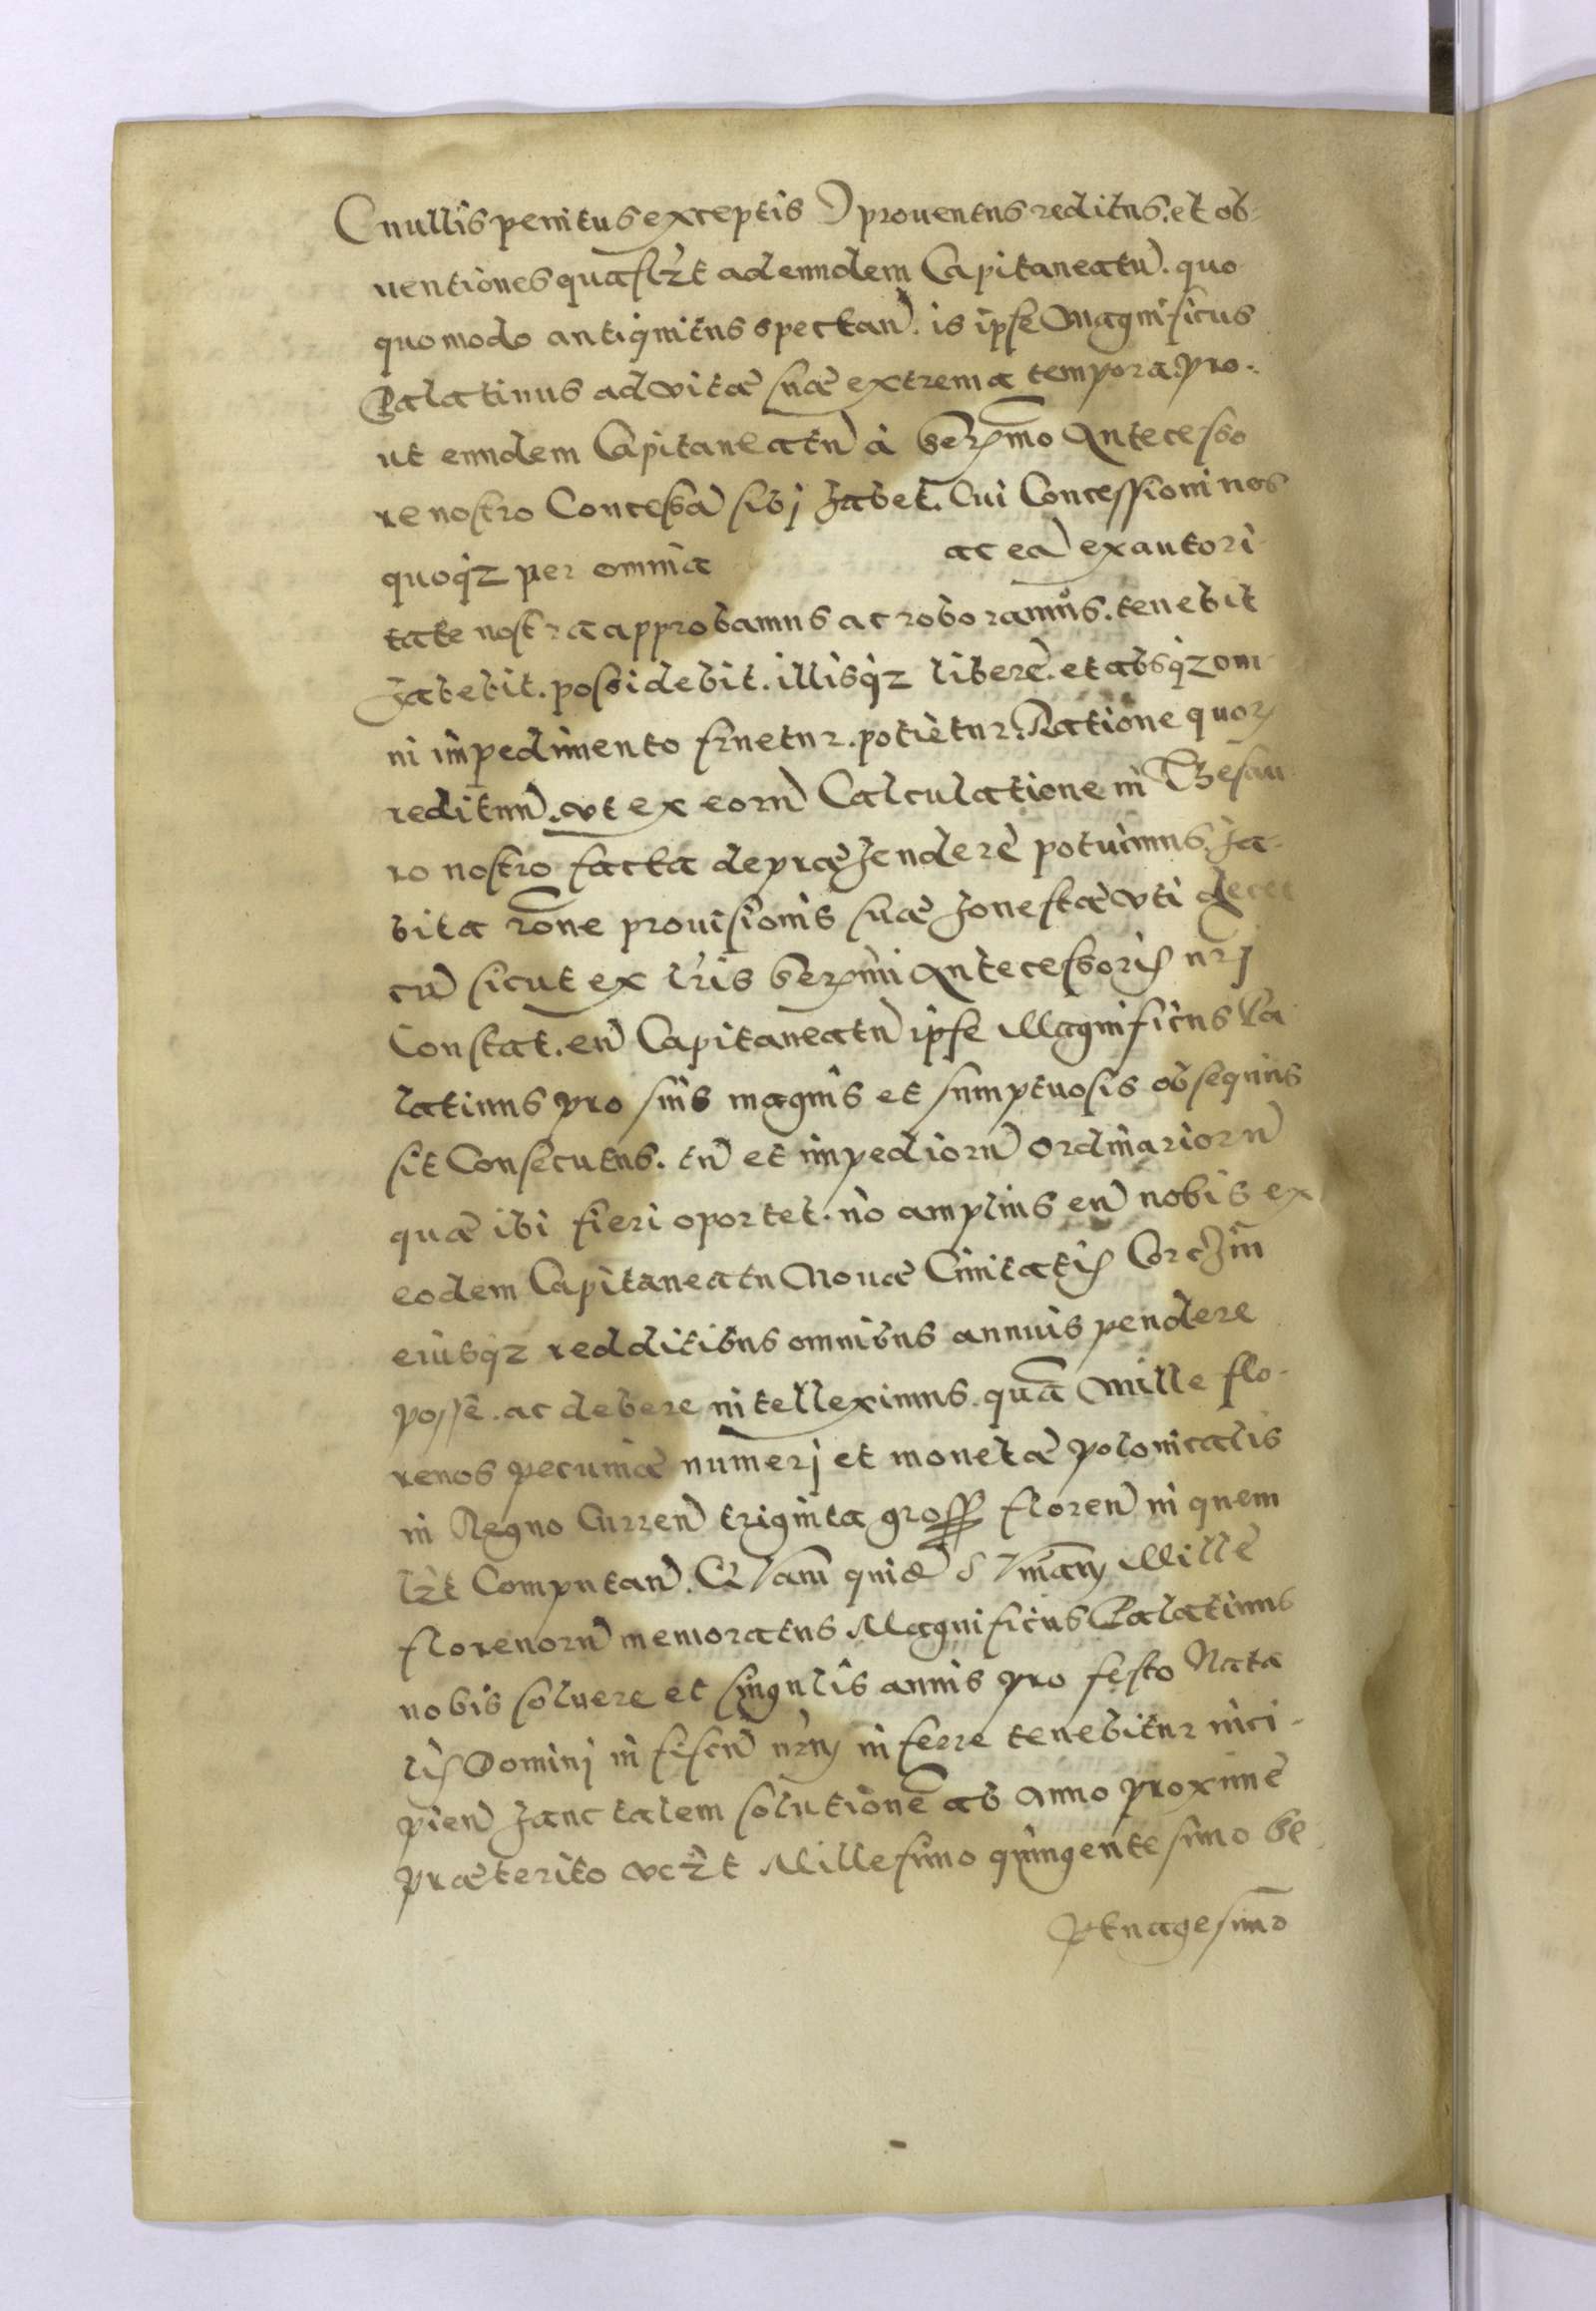 (nullis penitus exceptis) prouentus reditus. et ob-
uentiones quaslz̀t ad eundem Capitaneatũ. quo
quomodo antiquitus spectan̄. is ipse Magnificus
Palatinus ad vitæ suæ extrema tempora. pro-
ut eundem Capitaneatũ à Serm̃o Antecesso
re nostro Concessũ sibj habet. Cui Concessioni nos
quoqz per omnia ac eã ex autori
tate nostra approbamus ac roboramus. tenebit
habebit. possidebit. illisqz liberè. et absqz om
ni impedimento fruetur. potietur. Ratione quorũ
redituũ. vt ex eorũ Calculatione in Thesau
ro nostro facta depræhendere potuimus. ha-
bita rõne prouisionis suæ honestæ vti decet
cũ sicut ex lr̃is Serm̃i Antecessoris nrj
Constat. eũ Capitaneatũ ipse Magnificus Pa
latinus pro suis magnis et sumptuosis obsequiis
sit Consecutus. tũ et impediorũ ordinariorũ
quæ ibi fieri oportet. nõ amplius eũ nobis ex
eodem Capitaneatu Nouæ Ciuitatis Corchin
eiusqz redditibus omnibus annuis pendere
posse. ac debere intelleximus. quã Mille flo-
renos pecuniæ numerj et monetæ polonicalis
in Regno Curren̄ triginta gross floren̄ in quem
lz̀t Computan̄. Quam quidẽ summam Mille
florenorũ memoratus Magnificus Palatinus
nobis soluere et singulis annis pro festo Nata
lis Dominj in fiscũ nrũ inferre tenebitur inci-
pien̄ hanc talem solutionẽ ab Anno proximè
præterito vcz̀t Millesimo quingentesimo se
ptuagesimo